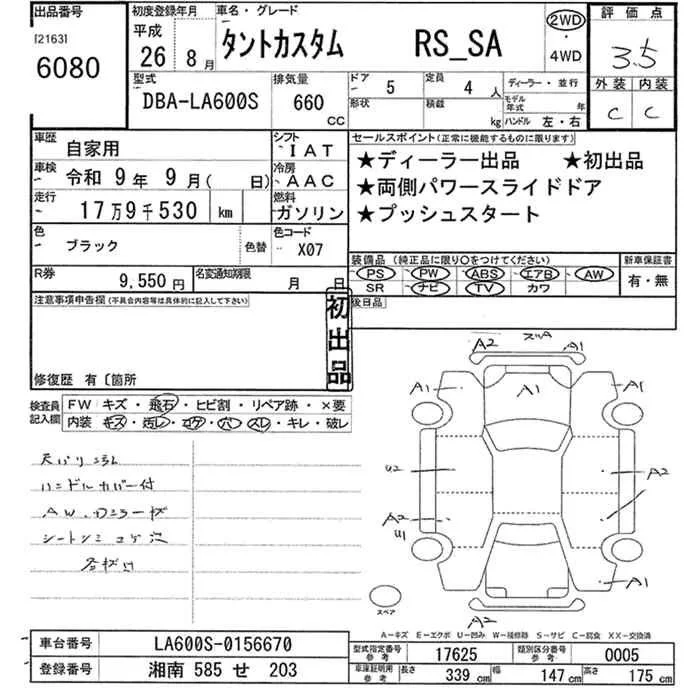 出品番号
[2163]
6080
初度登録年月
平成
26年 8月
車名・グレード
タントカスタム RS_SA
2WD
・
4WD
評価点
3.5
外装 内装
C C
型式
DBA-LA600S
排気量
660
CC
ドア 5
定員 4人
形状
積載 kg
ディーラー・並行
モデル年式 年
ハンドル 左・右
車歴 自家用
シフト IAT
車検 令和 9年 9月( 日)
冷房 AAC
走行 17万9千530 km
燃料 ガソリン
色 ブラック
色替
色コード X07
R券 9,550円
名変通知期限 月 日
セールスポイント(正常に機能するものに限ります)
★ディーラー出品 ★初出品
★両側パワースライドドア
★プッシュスタート
装備品 (純正品に限り○をつけてください)
PS PW ABS エアB AW
SR ナビ TV カワ
新車保証書
有・無
注意事項申告欄(不具合内容等は具体的に記入して下さい)
初出品
後日品
修復歴 有 〔箇所
検査員記入欄
FW キズ・飛石・ヒビ割・リペア跡・×要
内装 キズ・汚レ・コゲ・穴・スレ・キレ・破レ
ハンドルカバー付
A2 A1
A1 A1 A1
U2 A2
A2
U1
A1
A2
スペア
A−キズ E−エクボ U−凹み W−補修跡 S−サビ C−腐食 XX−交換済
車台番号 LA600S-0156670
登録番号 湘南 585 せ 203
型式指定番号 参考 17625
類別区分番号 参考 0005
車庫証明用 参考 長さ 339 cm 幅 147 cm 高さ 175 cm